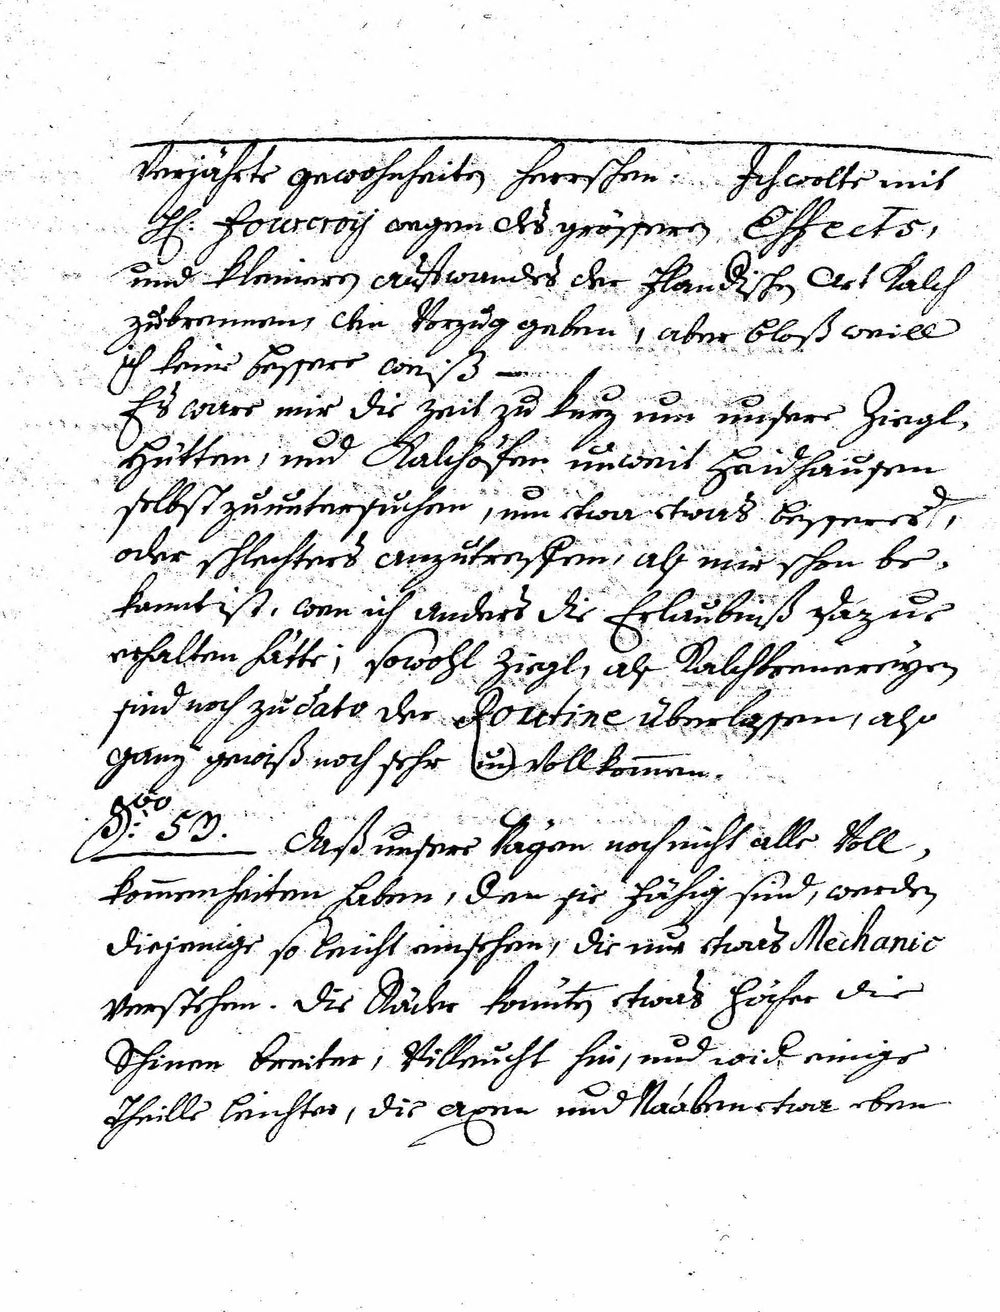 Verjährte gewohnheiten herrschen. Ich wolte mit
H: Fourcroij wegen des grössern Effects,
und kleinern aufwandes der Flandrischen Art Kalch
zubrennen, den Vorzug geben, aber bloß weill
ich keine bessere weiß —
Es ware mir die zeit zu kurz um unsere Ziegl,
Hütten, und Kalchöfen unweit Haidhausen
selbst zuuntersuchen, um etwa etwas besseres,
oder schlechters anzutreffen, als mir schon be,
kannt ist, wen ich anders die Erlaubniß dazue
erhalten hätte; sowohl Ziegl, als Kalchbrenereÿen
sind noch zu dato der Routine überlassen, also
ganz gewiß noch sehr unvollkommen.
§vo 53. daß unsere Wägen noch nicht alle Voll,
kommenheiten haben, deren sie fähig sind, werden
diejenige so leicht einsehen, die nur etwas Mechanic
verstehen. die Räder könten etwas höher die
Schinen breiter, Villeucht hin, und wid einige
Theille leichter, die axen und Naaben etwa eben